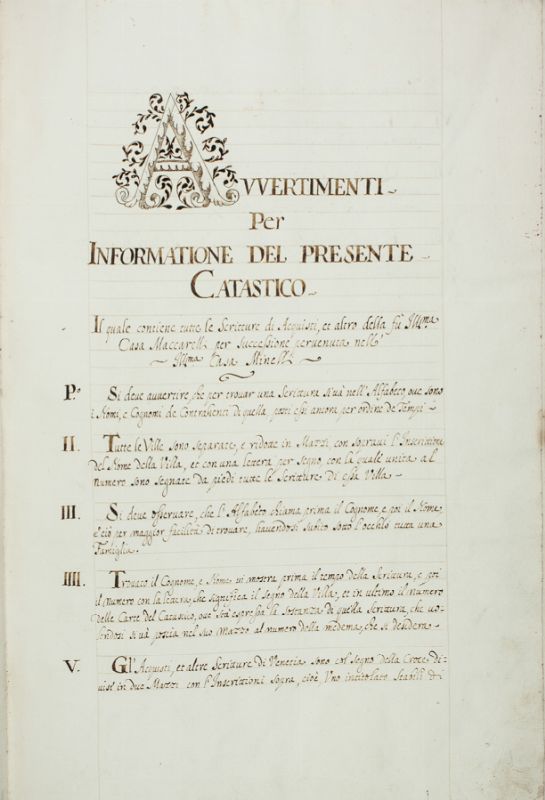 AVVERTIMENTI
Per
INFORMATIONE DEL PRESENTE
CATASTICO
Il quale contiene tutte le Scritture di Acquisti, et altro della fù Illma
Casa Maccarelli per successione pervenuta nell'
Illma Casa Minelli
P.º Si deve avvertire, che per trovar una Scrittura si và nell'Alfabeto, ove sono
i Nomi, e Cognomi de Contrahenti di quella, posti essi ancora per ordine de Tempi
II. Tutte le Ville sono separate, e ridote in Mazzi, con sopravi l'Inscrittione
del Nome della Villa, et con una lettera per segno, con la quale unita al
numero sono segnate da piedi tutte le Scritture di essa Villa
III. Si deve osservare, che l'Alfabeto chiama prima il Cognome, e poi il Nome,
e ciò per maggior facilità di trovare, havendosi subito sotto l'occhio tutta una
Famiglia.
IIII. Trovato il Cognome, e Nome vi mostra prima il tempo della Scrittura, e poi
il numero con la lettera, che significa il segno della Villa, et in ultimo il numero
delle Carte del Catastico, ove stà espressa la sostanza di quella Scrittura, che vo-
lendosi si và poscia nel suo Mazzo al numero della medema, che si desidera
V. Gl'Acquisti, et altre Scritture di Venetia sono col segno della Croce di-
visi in due Mazzi con l'Inscrittioni sopra, cioè Uno intitolato Stabili di